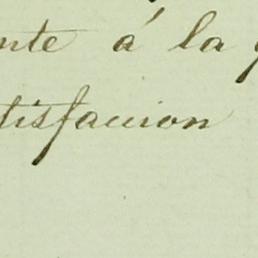 nte á la
tisfaccion